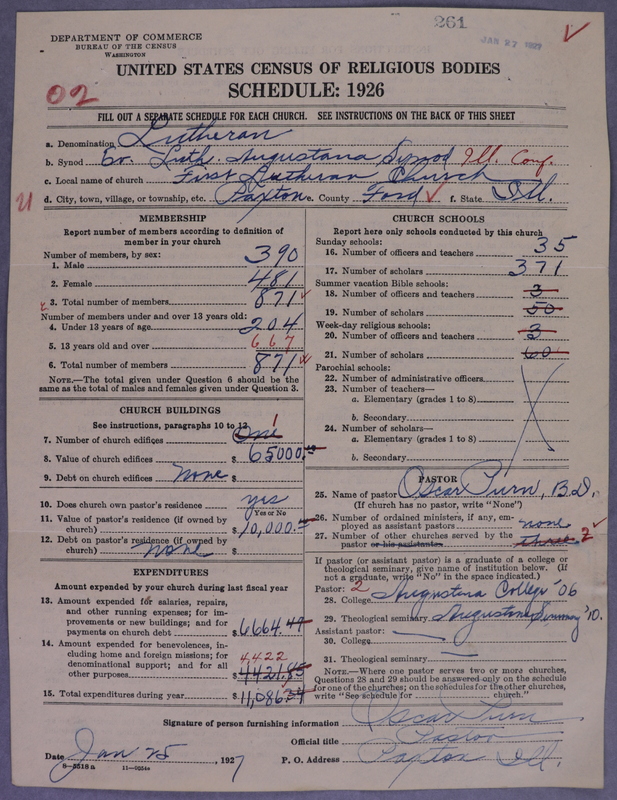 261
JAN 27 1927
DEPARTMENT OF COMMERCE
BUREAU OF THE CENSUS
WASHINGTON
UNITED STATES CENSUS OF RELIGIOUS BODIES
SCHEDULE: 1926
02
FILL OUT A SEPARATE SCHEDULE FOR EACH CHURCH. SEE INSTRUCTIONS ON THE BACK OF THIS SHEET
a. Denomination Lutheran
b. Synod Ev. Luth. Augustana Synod Ill. Conf.
c. Local name of church First Lutheran Church
d. City, town, village, or township, etc. Paxton e. County Ford f. State Ill.
MEMBERSHIP
Report number of members according to definition of
member in your church
Number of members, by sex:
1. Male 390
2. Female 481
3. Total number of members 871
Number of members under and over 13 years old:
4. Under 13 years of age 204
5. 13 years old and over 667
6. Total number of members 871
NOTE.—The total given under Question 6 should be
the same as the total of males and females given under Question 3.
CHURCH BUILDINGS
See instructions, paragraphs 10 to 12
7. Number of church edifices One 1
8. Value of church edifices $ 65000.
9. Debt on church edifices none $
10. Does church own pastor's residence yes
Yes or No
11. Value of pastor's residence (if owned by
church) $ 10,000.
12. Debt on pastor's residence (if owned by
church) none $
EXPENDITURES
Amount expended by church during last fiscal year
13. Amount expended for salaries, repairs,
and other running expenses; for im-
provements or new buildings; and for
payments on church debt $ 6664.49
14. Amount expended for benevolences, in-
cluding home and foreign missions; for
denominational support; and for all
other purposes $ 4421.85
4422
15. Total expenditures during year $ 11,086.34
CHURCH SCHOOLS
Report here only schools conducted by this church
Sunday schools:
16. Number of officers and teachers 35
17. Number of scholars 371
Summer vacation Bible schools:
18. Number of officers and teachers 3
19. Number of scholars 50
Week-day religious schools:
20. Number of officers and teachers 3
21. Number of scholars 60
Parochial schools:
22. Number of administrative officers
23. Number of teachers—
a. Elementary (grades 1 to 8)
b. Secondary
24. Number of scholars—
a. Elementary (grades 1 to 8)
b. Secondary
PASTOR
25. Name of pastor Oscar Purn, B.D.
(If church has no pastor, write "None")
26. Number of ordained ministers, if any, em-
ployed as assistant pastors none
27. Number of other churches served by the
pastor or his assistants three 2
If pastor (or assistant pastor) is a graduate of a college or
theological seminary, give name of institution below. (If
not a graduate, write "No" in the space indicated.)
Pastor: 2
28. College Augustana College '06
29. Theological seminary Augustana Seminary '10.
Assistant pastor:
30. College
31. Theological seminary
NOTE.—Where one pastor serves two or more churches,
Questions 28 and 29 should be answered only on the schedule
for one of the churches; on the schedules for the other churches,
write "See schedule for church."
Signature of person furnishing information Oscar Purn
Official title Pastor
Date Jan 25, 1927 P. O. Address Paxton Ill.
8—5518a 11—9054a